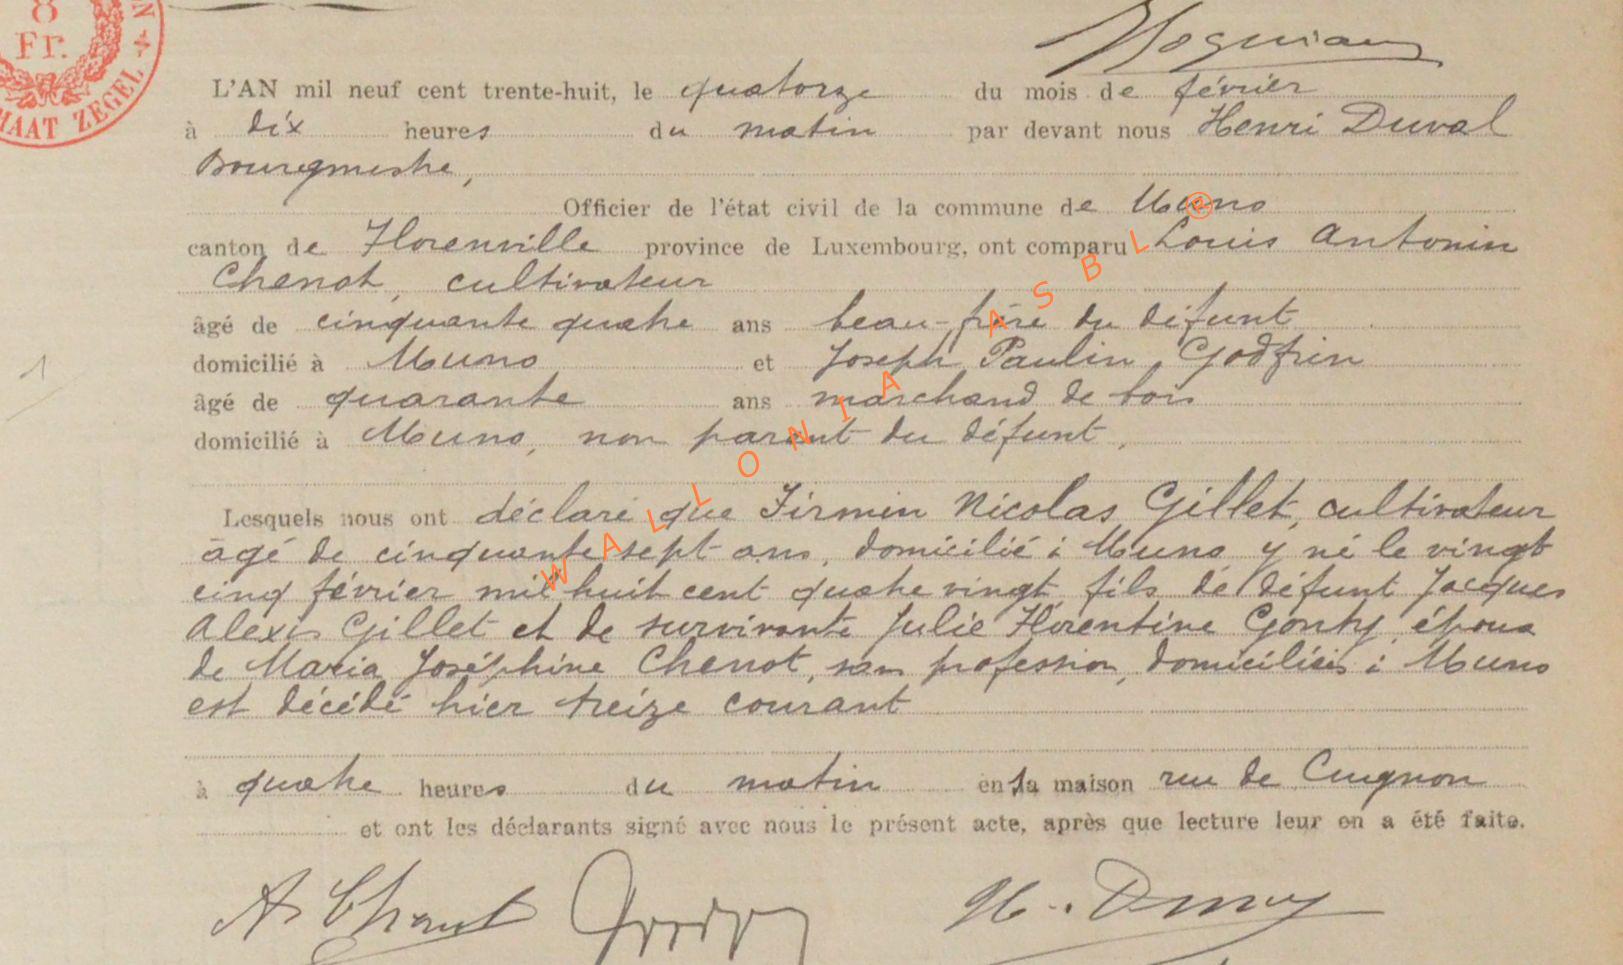 8
Fr.
MAAT ZEGEL
L'AN mil neuf cent trente-huit, le quatorze du mois de février
à dix heures du matin par devant nous Henri Duval
Bourgmestre,
Officier de l'état civil de la commune de Muno
canton de Florenville province de Luxembourg, ont comparu Louis Antonin
Chenot, cultivateur
âgé de cinquante quatre ans beau-frère du défunt
domicilié à Muno et Joseph Paulin Godfrin
âgé de quarante ans marchand de bois
domicilié à Muno, non parent du défunt,
Lesquels nous ont déclaré que Firmin Nicolas Gillet, cultivateur
âgé de cinquante sept ans, domicilié à Muno y né le vingt
cinq février mil huit cent quatre vingt fils de défunt Jacques
Alexis Gillet et de survivante Julie Florentine Gonty, époux
de Maria Joséphine Chenot, sans profession, domiciliés à Muno
est décédé hier treize courant
à quatre heures du matin en la maison rue de Cugnon
et ont les déclarants signé avec nous le présent acte, après que lecture leur en a été faite.
WALLONIA ASBL ®